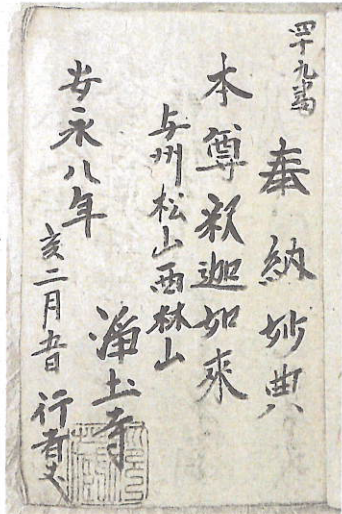 四十九番
奉納妙典
本尊釈迦如来
与州松山西林山
浄土寺
安永八年
亥二月五日 行者丈